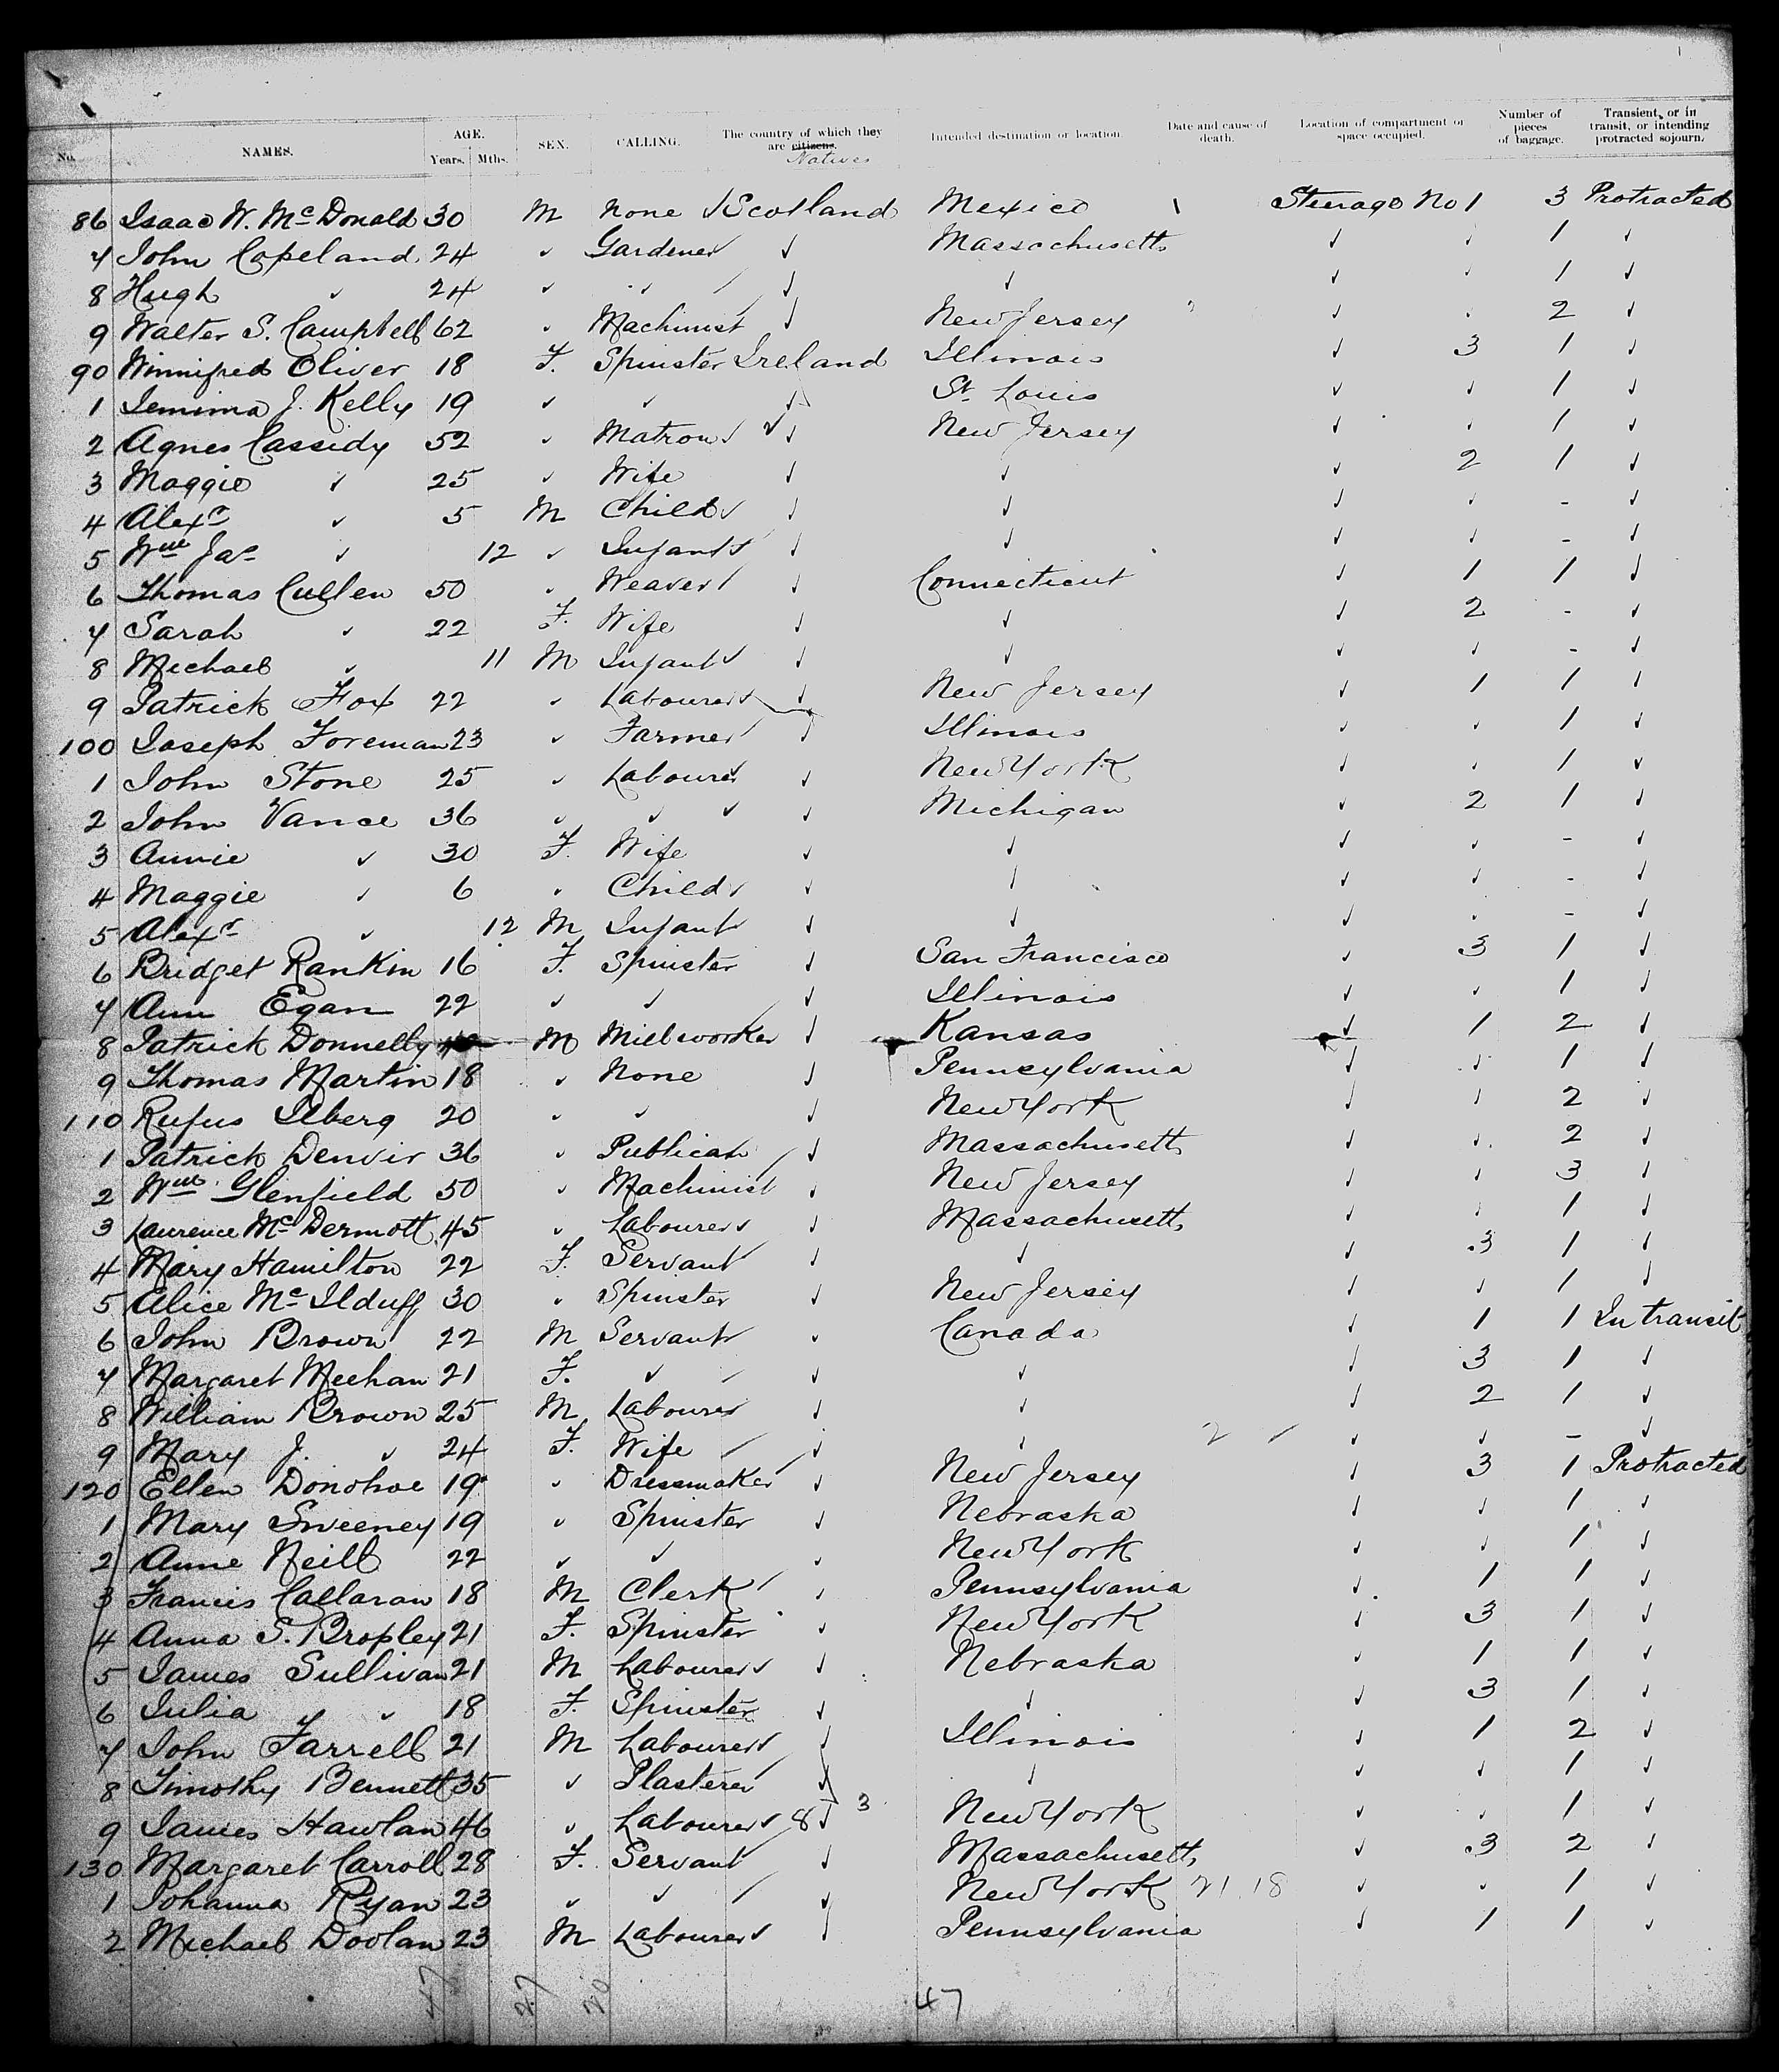 No. NAMES. AGE. Years. Mths. SEX. CALLING. The country of which they are citizens. Natives Intended destination or location. Date and cause of death. Location of compartment or space occupied. Number of pieces of baggage. Transient, or in transit, or intending protracted sojourn.
86 Isaac W. McDonald 30 M None ✓ Scotland Mexico Steerage No 1 3 Protracted
7 John Copeland 24 ✓ Gardener ✓ Massachusetts ✓ ✓ 1 ✓
8 Hugh ✓ 24 ✓ ✓ ✓ ✓ ✓ ✓ 1 ✓
9 Walter S. Campbell 62 ✓ Machinist ✓ New Jersey ✓ ✓ 2 ✓
90 Winnifred Oliver 18 F. Spinster Ireland Illinois ✓ 3 1 ✓
1 Jemima J. Kelly 19 ✓ ✓ ✓ St. Louis ✓ ✓ 1 ✓
2 Agnes Cassidy 52 ✓ Matron ✓ New Jersey ✓ ✓ 1 ✓
3 Maggie ✓ 25 ✓ Wife ✓ ✓ ✓ 2 1 ✓
4 Alexr ✓ 5 M Child ✓ ✓ ✓ ✓ - ✓
5 Wm Jas ✓ 12 ✓ Infant ✓ ✓ ✓ ✓ - ✓
6 Thomas Cullen 50 ✓ Weaver ✓ Connecticut ✓ 1 1 ✓
7 Sarah ✓ 22 F. Wife ✓ ✓ ✓ 2 - ✓
8 Michael ✓ 11 M Infant ✓ ✓ ✓ ✓ - ✓
9 Patrick Fox 22 ✓ Labourer ✓ New Jersey ✓ 1 1 ✓
100 Joseph Foreman 23 ✓ Farmer ✓ Illinois ✓ ✓ 1 ✓
1 John Stone 25 ✓ Labourer ✓ New York ✓ ✓ 1 ✓
2 John Vance 36 ✓ ✓ ✓ Michigan ✓ 2 1 ✓
3 Annie ✓ 30 F. Wife ✓ ✓ ✓ ✓ - ✓
4 Maggie ✓ 6 ✓ Child ✓ ✓ ✓ ✓ - ✓
5 Alexr ✓ 12 M Infant ✓ ✓ ✓ ✓ - ✓
6 Bridget Rankin 16 F. Spinster ✓ San Francisco ✓ 3 1 ✓
7 Ann Egan 22 ✓ ✓ ✓ Illinois ✓ ✓ 1 ✓
8 Patrick Donnelly M Millworker ✓ Kansas ✓ 1 2 ✓
9 Thomas Martin 18 ✓ None ✓ Pennsylvania ✓ ✓ 1 ✓
110 Rufus Ilberg 20 ✓ ✓ ✓ New York ✓ ✓ 2 ✓
1 Patrick Denvir 36 ✓ Publican ✓ Massachusetts ✓ ✓ 2 ✓
2 Wm. Glenfield 50 ✓ Machinist ✓ New Jersey ✓ ✓ 3 ✓
3 Laurence McDermott 45 ✓ Labourer ✓ Massachusetts ✓ ✓ 1 ✓
4 Mary Hamilton 22 F. Servant ✓ ✓ ✓ 3 1 ✓
5 Alice McIlduff 30 ✓ Spinster ✓ New Jersey ✓ ✓ 1 ✓
6 John Brown 22 M Servant ✓ Canada ✓ 1 1 In transit
7 Margaret Meehan 21 F. ✓ ✓ ✓ ✓ 3 1 ✓
8 William Brown 25 M Labourer ✓ ✓ ✓ 2 1 ✓
9 Mary J. ✓ 24 F. Wife ✓ ✓ 2 ✓ ✓ - ✓
120 Ellen Donohoe 19 ✓ Dressmaker ✓ New Jersey ✓ 3 1 Protracted
1 Mary Sweeney 19 ✓ Spinster ✓ Nebraska ✓ ✓ 1 ✓
2 Anne Neill 22 ✓ ✓ ✓ New York ✓ ✓ 1 ✓
3 Francis Callaran 18 M Clerk ✓ Pennsylvania ✓ 1 1 ✓
4 Anna S. Bropley 21 F. Spinster ✓ New York ✓ 3 1 ✓
5 James Sullivan 21 M Labourer ✓ Nebraska ✓ 1 1 ✓
6 Julia ✓ 18 F. Spinster ✓ ✓ ✓ 3 1 ✓
7 John Farrell 21 M Labourer ✓ Illinois ✓ 1 2 ✓
8 Timothy Bennett 35 ✓ Plasterer ✓ ✓ ✓ ✓ 1 ✓
9 James Hawlan 46 ✓ Labourer 8 ✓ 3 New York ✓ ✓ 1 ✓
130 Margaret Carroll 28 F. Servant ✓ Massachusetts ✓ 3 2 ✓
1 Johanna Ryan 23 ✓ ✓ ✓ New York 21.18 ✓ ✓ 1 ✓
2 Michael Doolan 23 M Labourer ✓ Pennsylvania ✓ 1 1 ✓
47 27 20 47